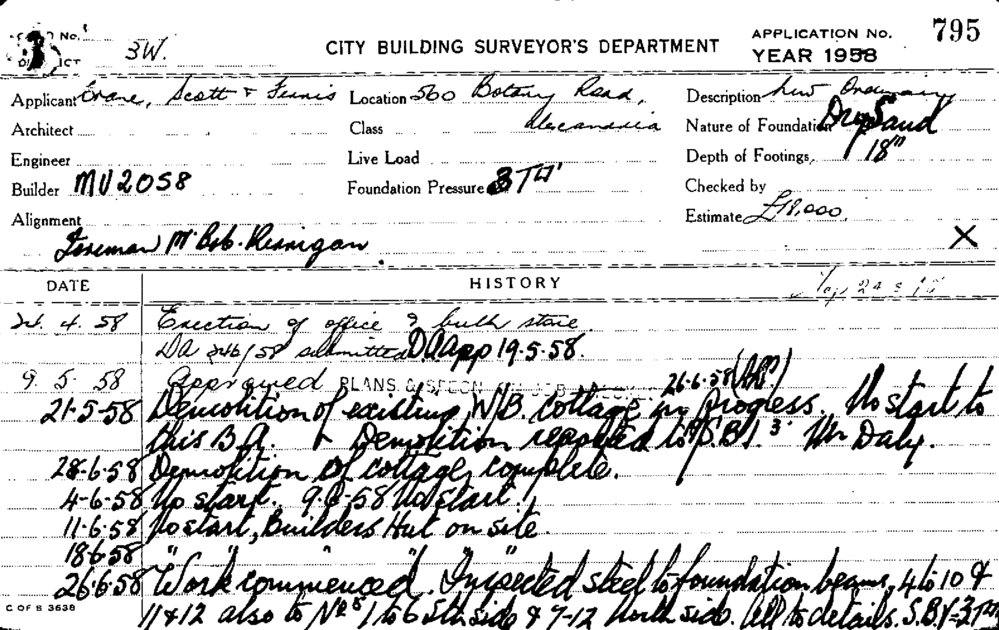 No.
3W.
CITY BUILDING SURVEYOR'S DEPARTMENT
APPLICATION No. 795
YEAR 1958
Applicant Crane, Scott & Ferris
Location 560 Botany Road, Alexandria
Description New
Architect
Class
Nature of Foundation Dry Sand
Engineer
Live Load
Depth of Footings 18"
Builder MU2058
Foundation Pressure 3 T
Checked by
Alignment
Estimate £18,000
Foreman Mr Bob
X
DATE
HISTORY
4. 58 Erection of office & bulk store.
DA 246/58 submitted D.A App 19.5.58.
9. 5. 58 Approved PLANS & 26-6-58
21-5-58 Demolition of existing W/B. Cottage in progress. No start to
this B.A. & Demolition reported to S.B.I. 3 Mr Daly.
28-6-58 Demolition of cottage complete.
4-6-58 No start. 9-6-58 No start.
11-6-58 No start, Builders Hut on site.
18-6-58 " " " "
26-6-58 Work commenced. Inspected steel to foundation beams, 4 to 10 &
11 & 12 also to Nos 1 to 6 Sth side & 7-12 North side. All to details. S.B.V=3T
C OF S 3638